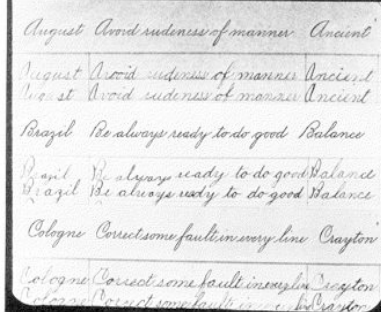 August Avoid rudeness of manner Ancient
August Avoid rudeness of manner Ancient
August Avoid rudeness of manner Ancient
Brazil Be always ready to do good Balance
Brazil Be always ready to do good Balance
Brazil Be always ready to do good Balance
Cologne Correct some fault in every line Crayton
Cologne Correct some fault in every line Crayton
Cologne Correct some fault in every line Crayton